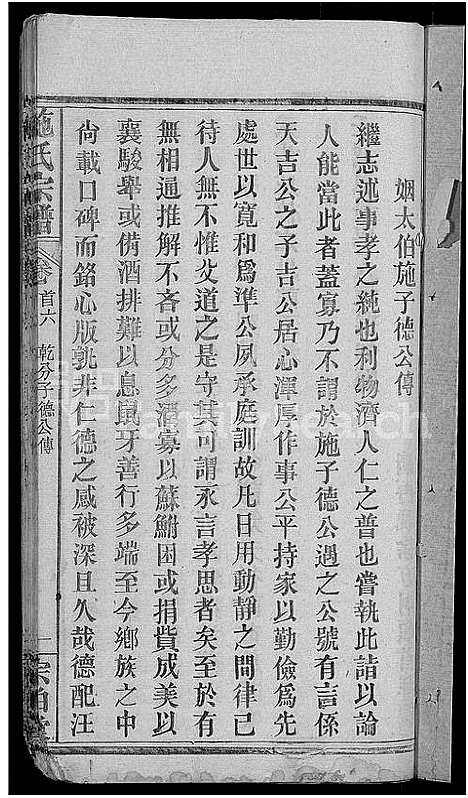 姻太伯施子德公傳
繼志述事孝之純也利物濟人仁之普也嘗執此詣以論
人能當此者蓋寡乃不謂於施子德公遇之公號有言係
天吉公之子吉公居心渾厚作事公平持家以勤儉爲先
處世以寬和爲準公夙承庭訓故凡日用動靜之間律己
待人無不惟父道之是守其可謂永言孝思者矣至於有
無相通推解不吝或分多潤寡以蘇鮒困或捐貲成美以
襄駿舉或備酒排難以息鼠牙善行多端至今鄉族之中
尚載口碑而銘心版孰非仁德之感被深且久哉德配汪
施氏宗譜
卷首六 乾分子德公傳
一